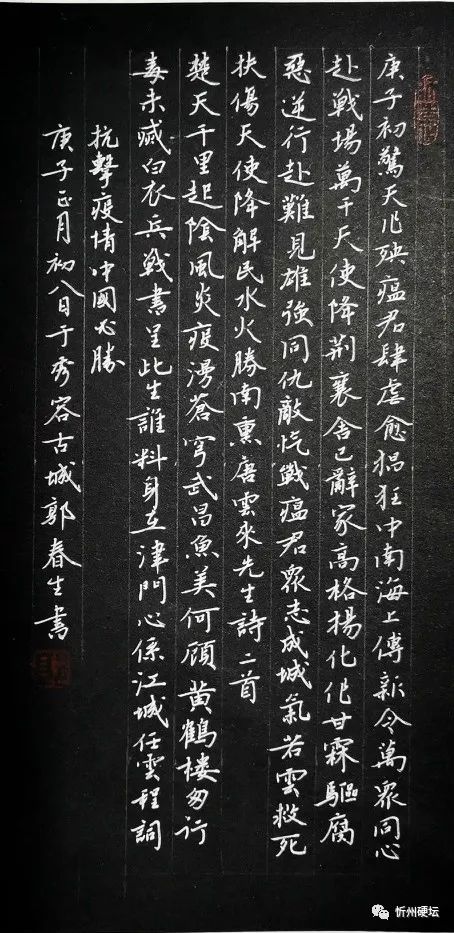 庚子初驚天兆殃瘟君肆虐愈猖狂中南海上傳新令萬眾同心
赴戰場萬千天使降荊襄舍己辭家高格揚化作甘霖驅腐
惡逆行赴難見雄強同仇敵忾戰瘟君眾志成城氣若雲救死
扶傷天使降解民水火勝南熏唐雲來先生詩二首
楚天千里起陰風炎疫湧蒼穹武昌魚美何顧黃鶴樓匆行
毒未滅白衣兵戰書呈此生誰料身在津門心係江城任雲程詞
抗擊疫情中國必勝
庚子正月初八日于秀容古城郭春生書
忻州硬坛